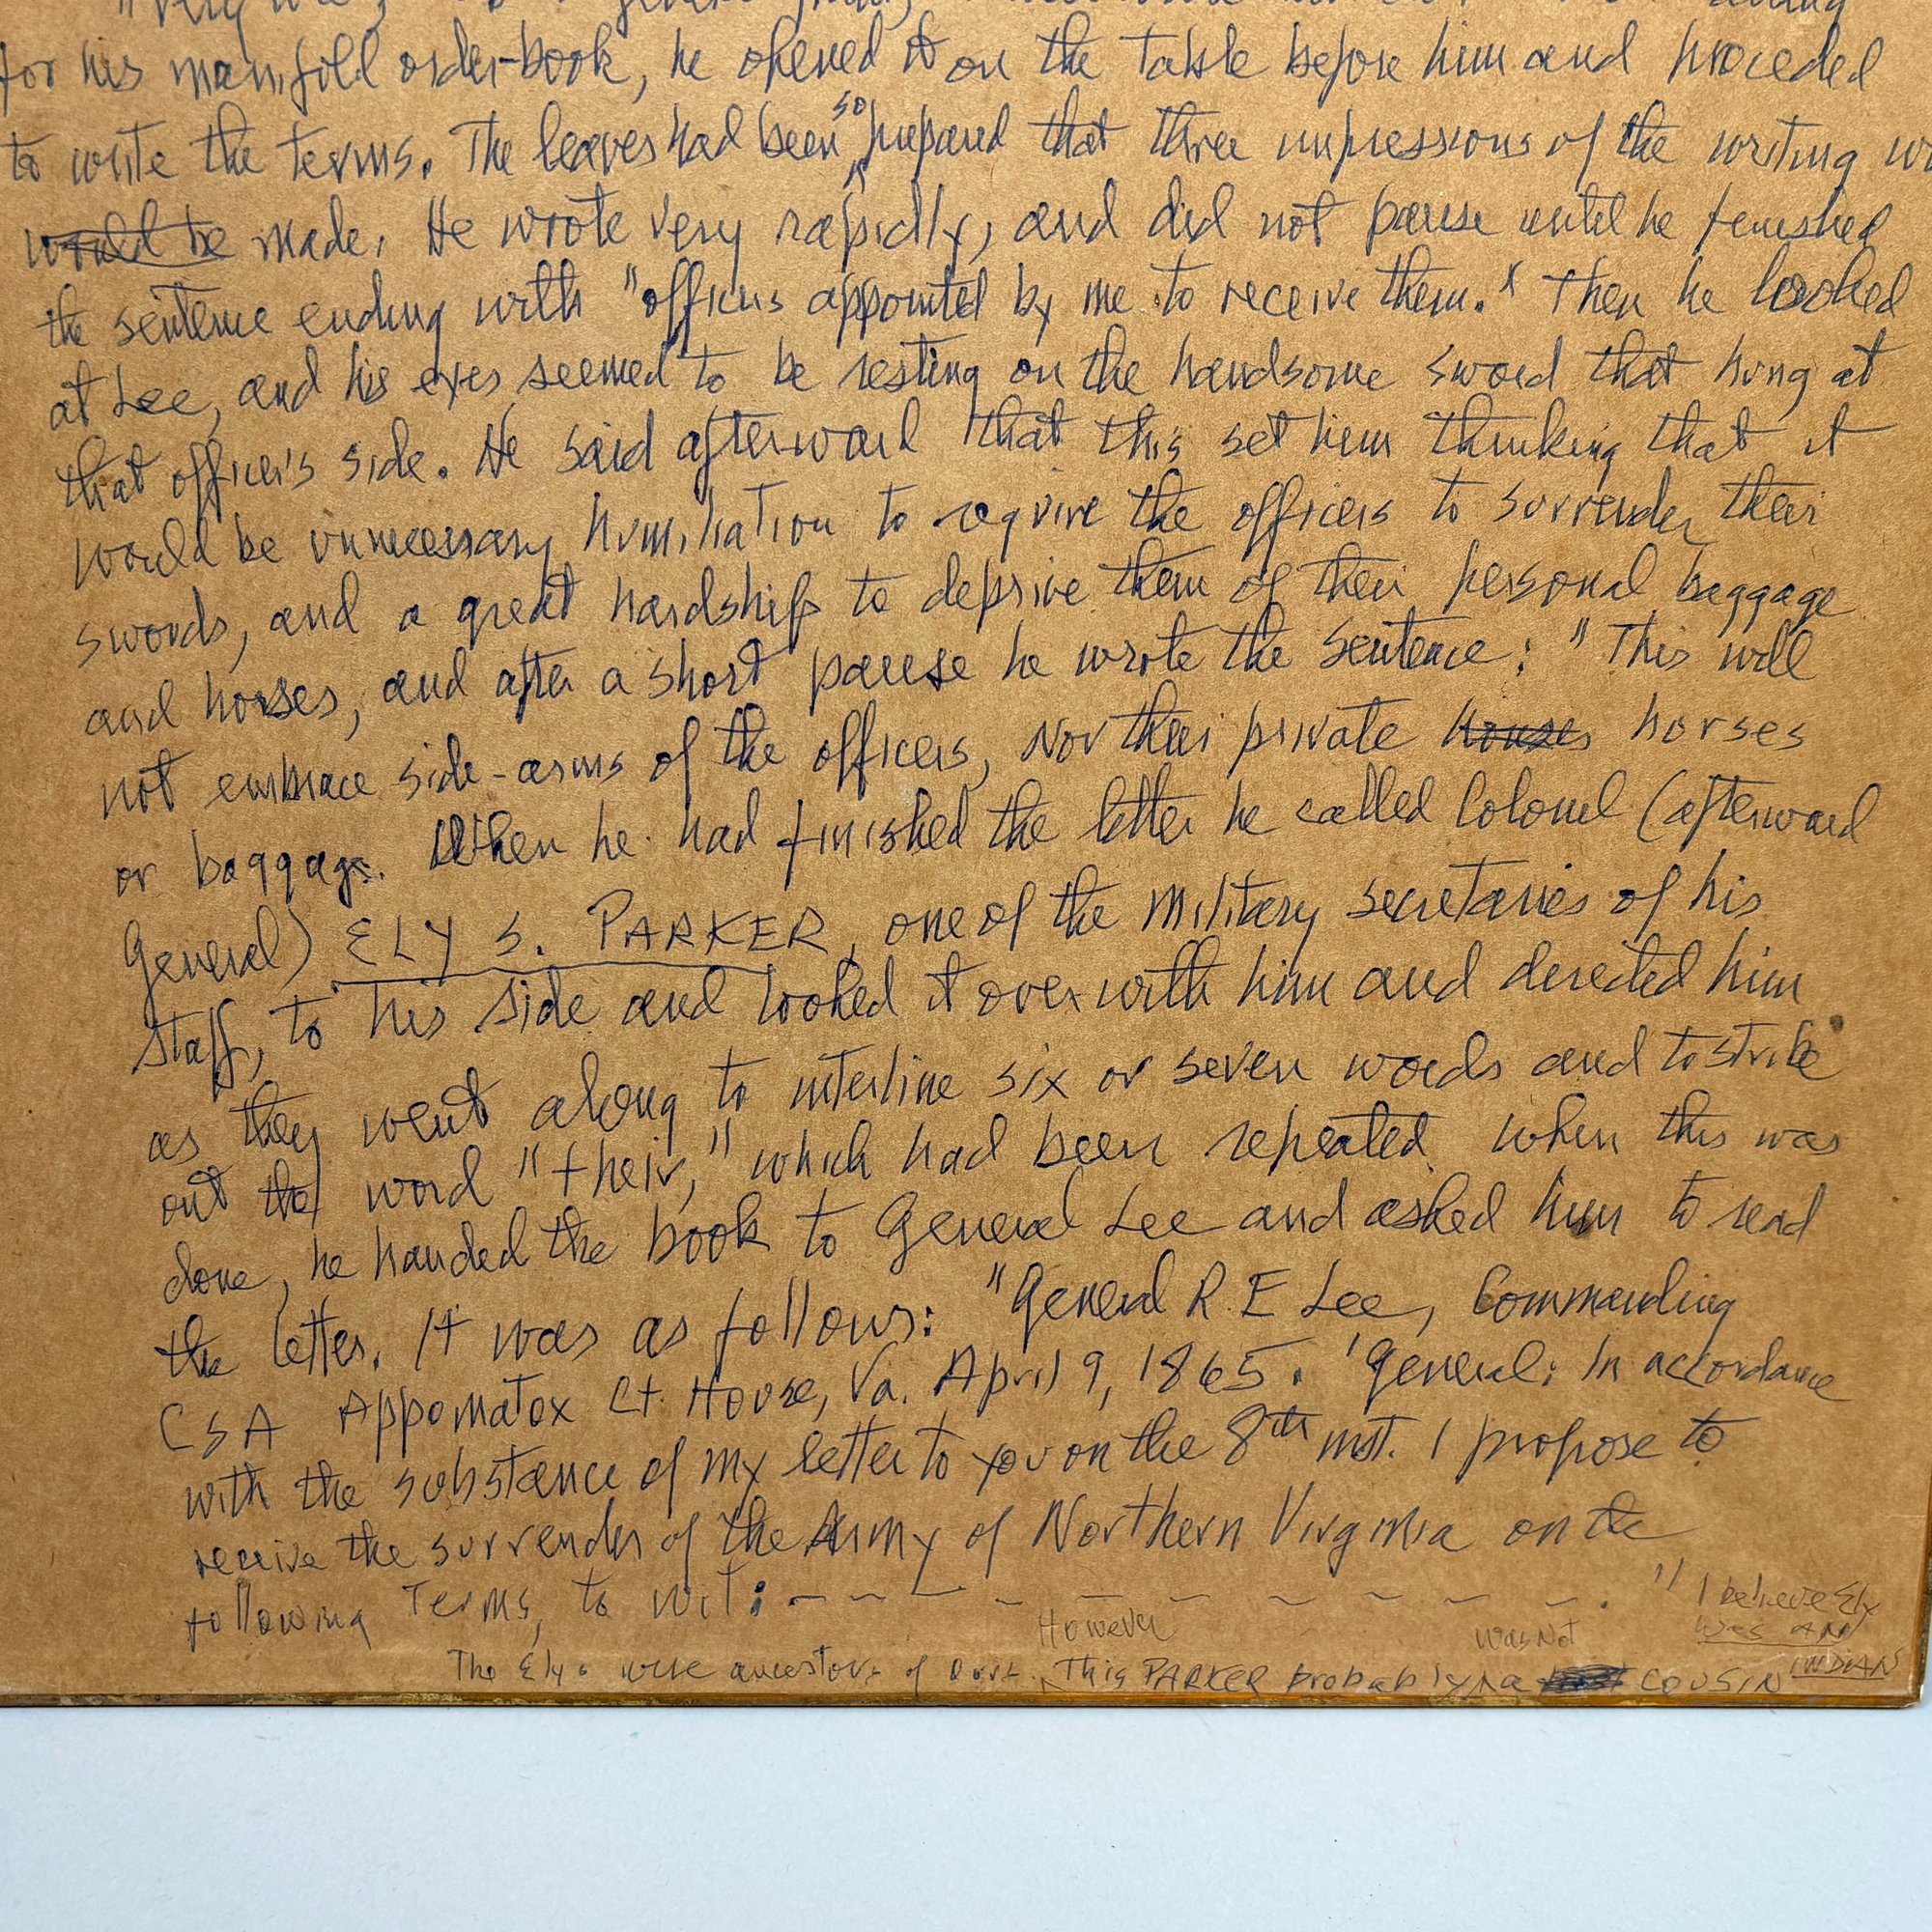 for his manifold order-book, he opened it on the table before him and proceded
to write the terms. The leaves had been so prepared that three impressions of the writing
would be made. He wrote very rapidly, and did not pause until he finished
the sentence ending with "officers appointed by me to receive them." Then he looked
at Lee, and his eyes seemed to be resting on the handsome sword that hung at
that officer's side. He said afterward that this set him thinking that it
would be unnecessary humiliation to require the officers to surrender their
swords, and a great hardship to deprive them of their personal baggage
and horses, and after a short pause he wrote the sentence: "This will
not embrace side-arms of the officers, Nor their private houses horses
or baggage. When he had finished the letter he called Colonel (afterward
General) ELY S. PARKER, one of the military secretaries of his
staff, to his side and looked it over with him and derected him
as they went along to interline six or seven words and to strike
out the word "their," which had been repeated. When this was
done, he handed the book to General Lee and asked him to read
the letter. It was as follows: "General R. E Lee, Commanding
CSA Appomatox Ct. House, Va. April 9, 1865. 'General: In accordance
with the substance of my letter to you on the 8th inst. I propose to
receive the surrender of the Army of Northern Virginia on the
following Terms, to wit: - - - - - - - - - - ."
I believe Ely
was AN
INDIAN
However was Not
The Elys were ancestors of Ours. This PARKER probably a COUSIN